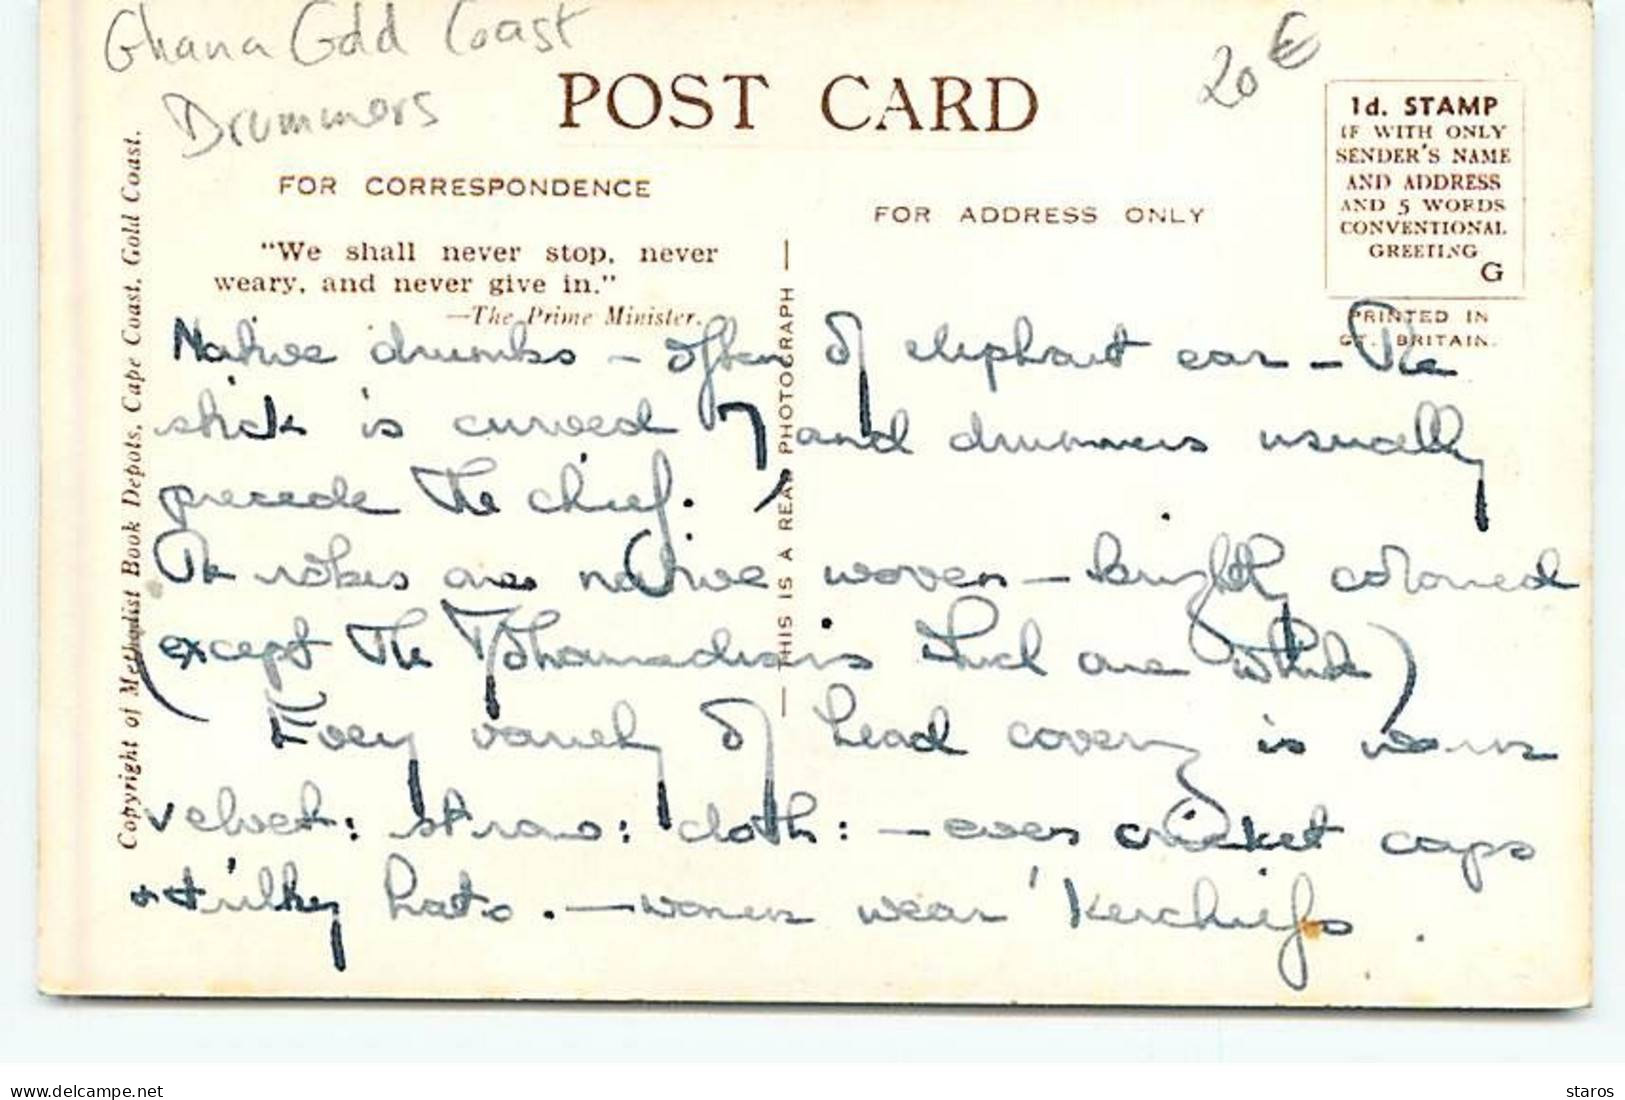 Ghana Gold Coast
Drummers
20 €
POST CARD
1d. STAMP
IF WITH ONLY
SENDER'S NAME
AND ADDRESS
AND 5 WORDS
CONVENTIONAL
GREETING
G
PRINTED IN
GT. BRITAIN.
FOR CORRESPONDENCE
FOR ADDRESS ONLY
"We shall never stop, never
weary, and never give in."
—The Prime Minister.
Copyright of Methodist Book Depots, Cape Coast, Gold Coast.
— THIS IS A REAL PHOTOGRAPH —
Native drums – often of elephant ear – The
stick is curved 7 and drummers usually
precede the chief.
The robes are native woven – brightly coloured
(except the Mohamedans which are white)
Every variety of head covering is worn
velvet: straw: cloth: – even cricket caps
+ trilby hats. – women wear 'Kerchiefs.
delcampe.net
staros